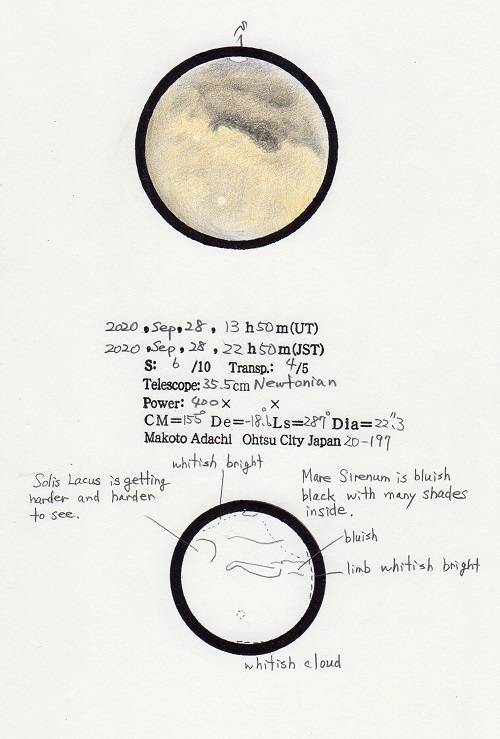 2020, Sep, 28, 13 h 50 m (UT)
2020, Sep, 28, 22 h 50 m (JST)
S: 6 /10 Transp.: 4/5
Telescope: 35.5cm Newtonian
Power: 400× ×
CM=155° De=-18.6° Ls=287° Dia=22".3
Makoto Adachi Ohtsu City Japan 20-197
whitish bright
Solis Lacus is getting
harder and harder
to see.
Mare Sirenum is bluish
black with many shades
inside.
bluish
limb whitish bright
whitish cloud